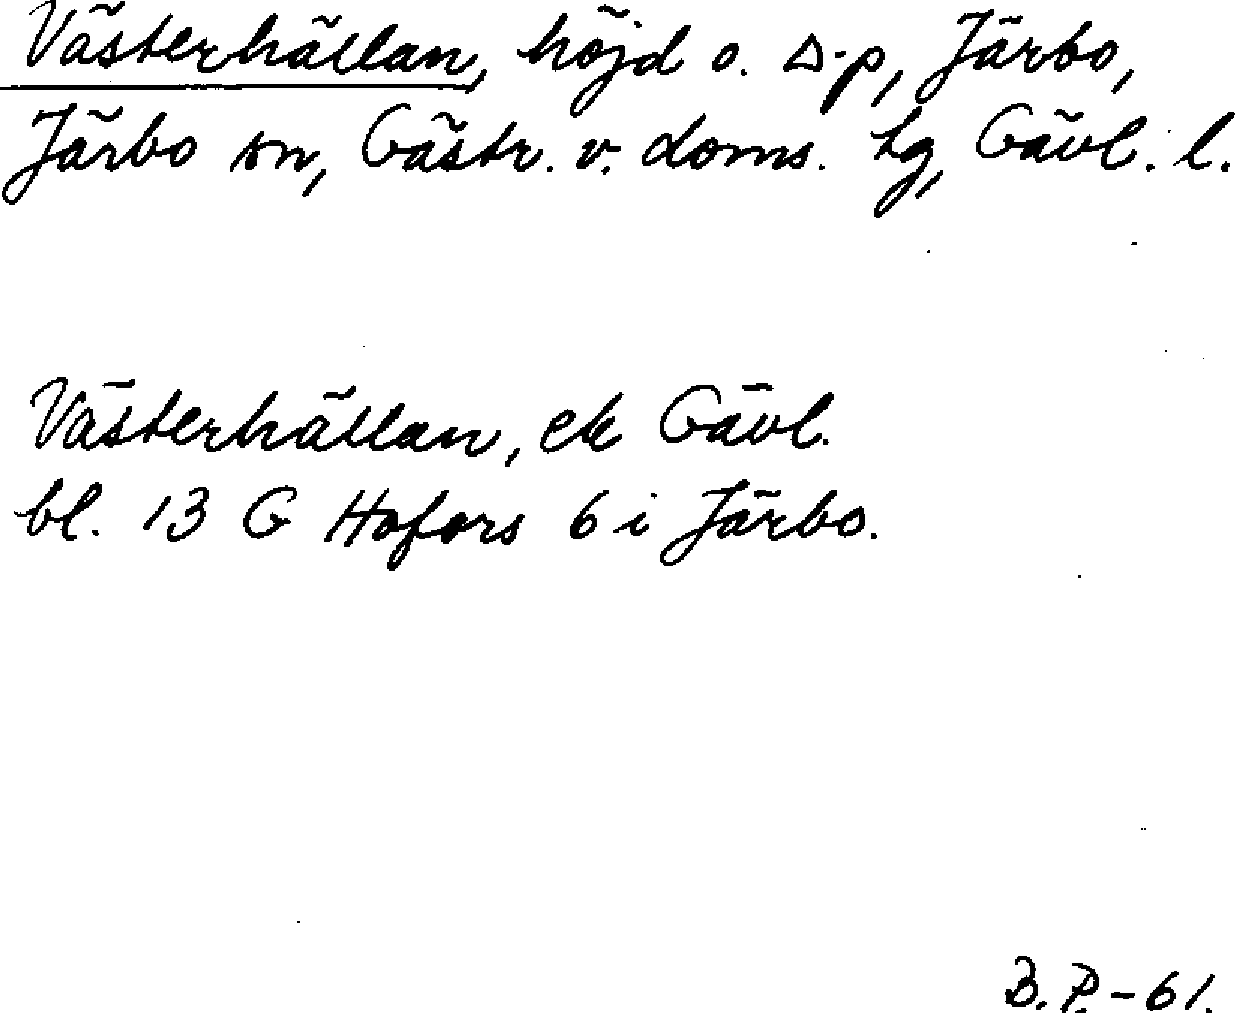 Västerhällan, höjd o. Δ-p, Järbo,
Järbo sn, Gästr. v. doms. tg, Gävl. l.
Västerhällan, ek Gävl.
bl. 13 G Hofors 6 i Järbo.
B. P. - 61.